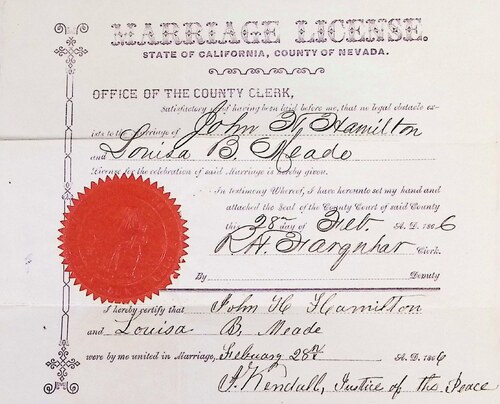 MARRIAGE LICENSE.
STATE OF CALIFORNIA, COUNTY OF NEVADA.
OFFICE OF THE COUNTY CLERK,
Satisfactory proof having been laid before me, that no legal obstacle ex-
ists to the Marriage of John H. Hamilton
and Louisa B. Meade
License for the celebration of said Marriage is hereby given.
In testimony Whereof, I have hereunto set my hand and
attached the Seal of the County Court of said County
this 28th day of Feb. A. D. 1866
R. H. Farquhar Clerk.
By Deputy
I hereby certify that John H. Hamilton
and Louisa B. Meade
were by me united in Marriage, February 28th A. D. 1866
Kendall, Justice of the Peace